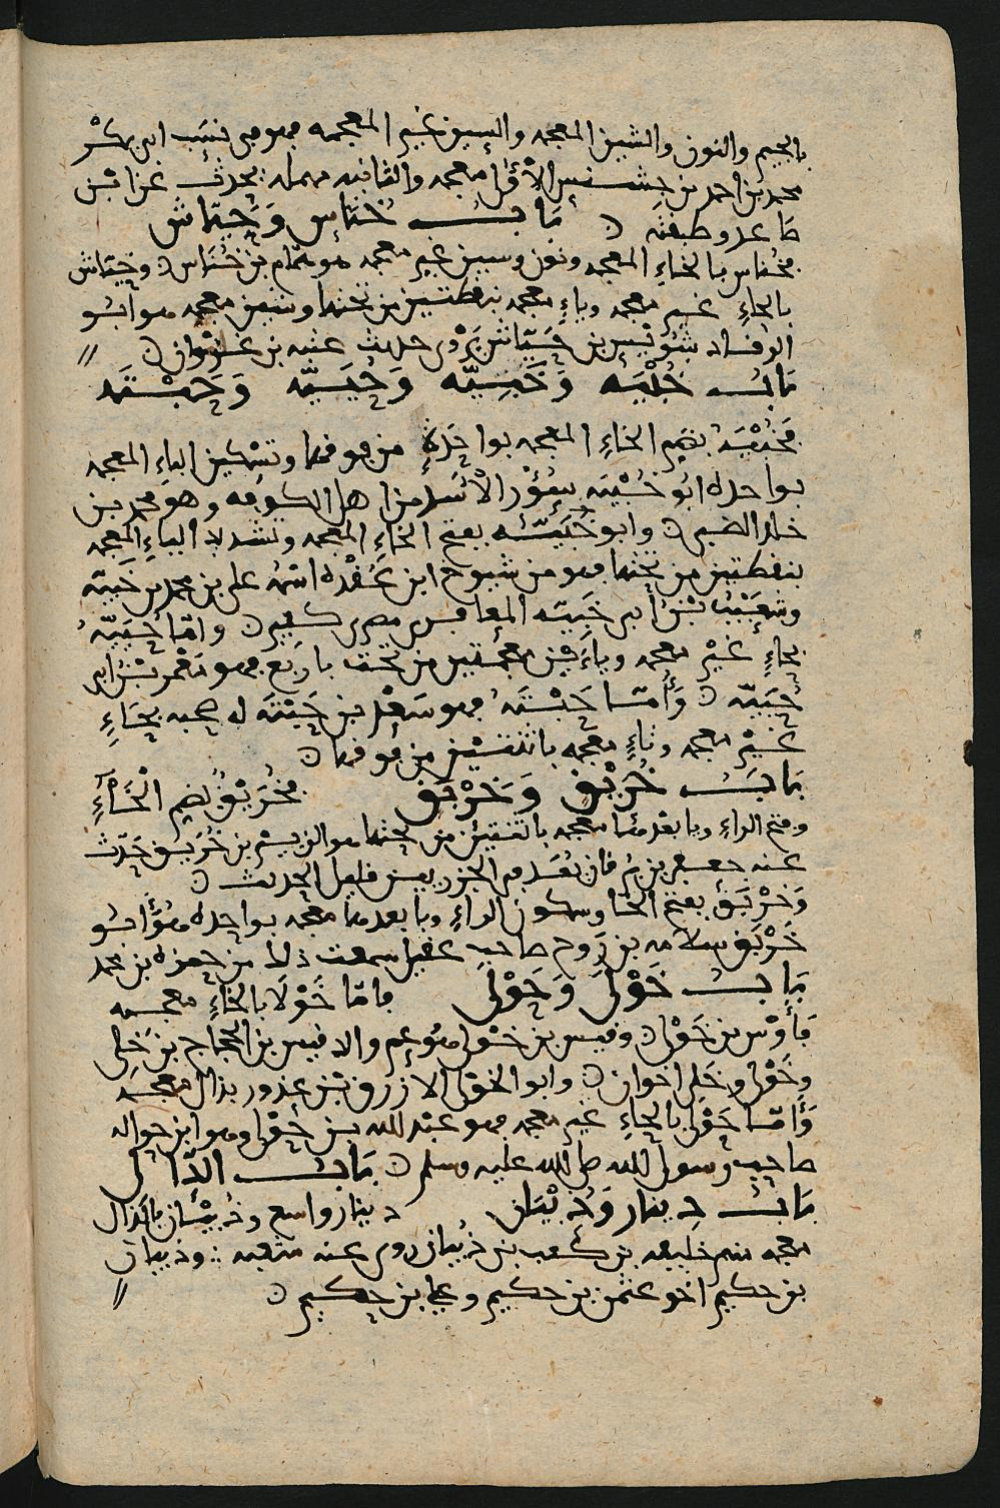 بالجيم والنون والشين المعجمه والسين غير المعجمه فهو في نسب ابي بكر
محمد بن احمد بن خنش الأولى معجمه والثانيه مهمله يحدث عن ابن
صاعد وطبقته ٥ باب خُنَاس وَحَيّاش
فخناس بالخاءِ المعجمه ونون وسين غير معجمه هو همّام بن خُنَاس ٥ وحيّاش
بالحاءِ غير معجمه وياءٍ معجمه بنقطتين من تحتها وشين معجمه هو ابو
الرقاد شويس بن حَيّاش يَروي حديث عتبه بن غزوان ٥
بَاب خُبْيَه وَخَبِيّه وَحُيَيّه وَحَبْتَه
فخُبْيَه بضم الخاءِ المعجمه بواحدةٍ من فوقها وتسْكين الباءِ المعجمه
بواحده ابو خُبْيَه سؤر الأسد من اهل الكوفه وهو محمد بن
خالد الضبي ٥ وابو خَبيّه بفتح الخاءِ المعجمه وتشديد الياءِ المعجمه
بنقطتين من تحتها فهو من شيوخ ابن عُقْده اسمه علي بن محمد بن خَبيّه
وشعَيْب بْن أبي خَبِيّه المعافري مصري كبير ٥ وامّا حُيَيّه
بحاءٍ غيْر معجمه وياءَيْن معجمتين من تحت باربع فهو معْمر بْن ابي
حُيَيّه ٥ وَأمّا حَبْتَه فهو سَعْد بن حَبْتَه له صحبه بحَاءٍ
غيْر معجمه وتاءٍ معجمه باثنتيْن من فوقها ٥
بَاب خُرَيْق وَخَرْبَق فخُرَيْق بضم الْخَاءِ
وفتح الراءِ ويا بعدها معجمه باثنتين من تحتها هو الزبير بن خُرَيق حَدّث
عنه جعفر بن بُرقان يُعَد في الجزريين قليل الحديث ٥
وَخَرْبَق بفتح الخا وسكون الراءِ وبا بعدها معجمه بواحده هُوَ ابو
خَرْبَق سلامه بن رَوح صاحب عقيل سمعت ذلك من حمزه بن محمد
بَاب خَوْلَى وَحَوْلَى فامّا خَوْلى بالخاءِ معجمه
فأوْس بن خَوْلى ٥ وقيس بن خَوْلى هُوَ عم والد قيس بن الحجاج بن خَلِي
وخَوْلى وخَلِي اخوان ٥ وابو الخولى الازرق بْن عذور بذال معجمه
وَأمّا حَوْلى بالحاءِ غير معجمه فهو عبْد الله بن حَوْلى وهو ابن حواله
صاحب رسول الله صلى الله عليه وسلم ٥ بَاب الدّال
بَاب دِينار وَذُبْيَان دينار واسع وذُبْيَان بالذال
معجمه منهم خليفه بن كعب بن ذُبيان روى عنه شعبه وذبيان
بن حكيم اخو عثمن بن حكيم وعلي بن حكيم ٥